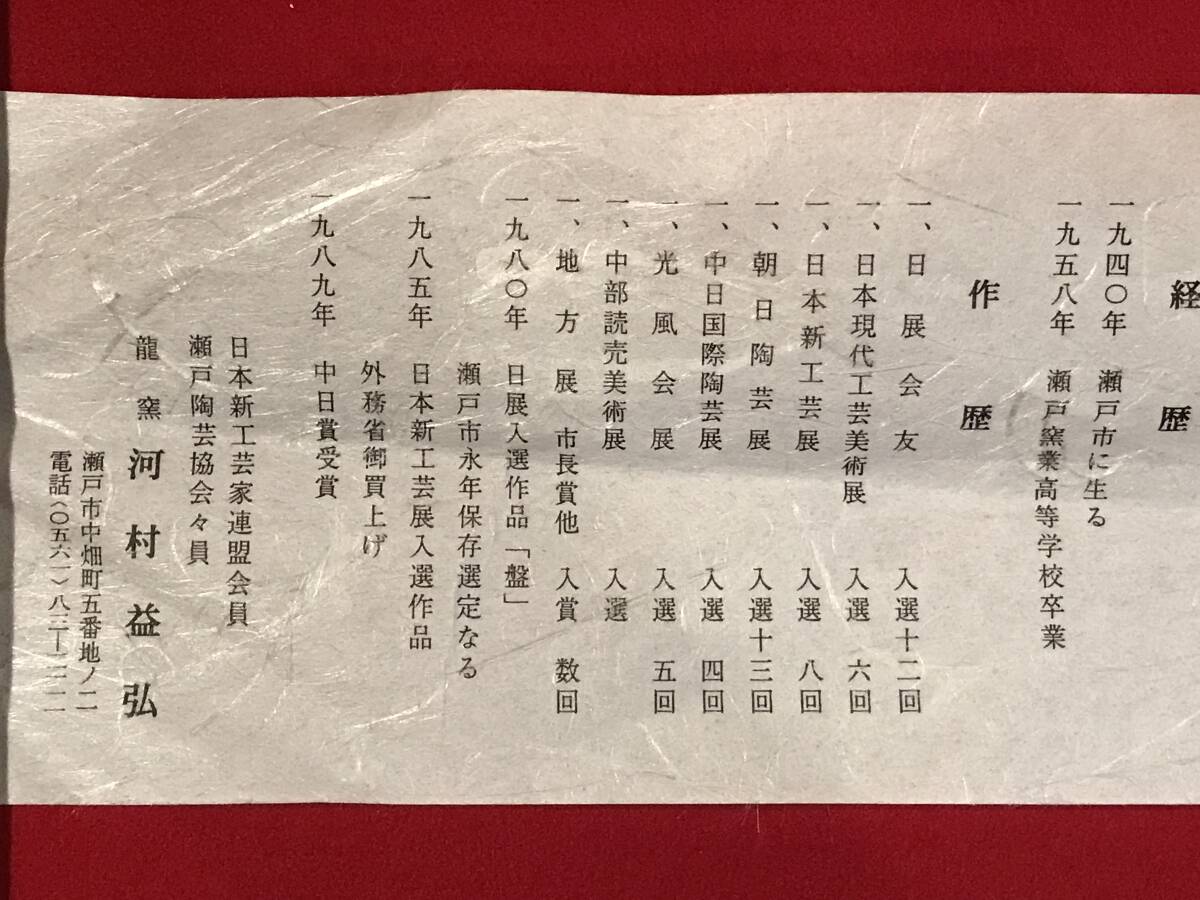 経歴
一九四〇年　瀬戸市に生る
一九五八年　瀬戸窯業高等学校卒業
作歴
一、日展会友　入選十二回
一、日本現代工芸美術展　入選　六回
一、日本新工芸展　入選　八回
一、朝日陶芸展　入選十三回
一、中日国際陶芸展　入選　四回
一、光風会展　入選　五回
一、中部読売美術展　入選
一、地方展　市長賞他　入賞　数回
一九八〇年　日展入選作品「盤」
瀬戸市永年保存選定なる
一九八五年　日本新工芸展入選作品
外務省御買上げ
一九八九年　中日賞受賞
日本新工芸家連盟会員
瀬戸陶芸協会々員
龍窯　河村益弘
瀬戸市中畑町五番地ノ二
電話〈〇五六一〉